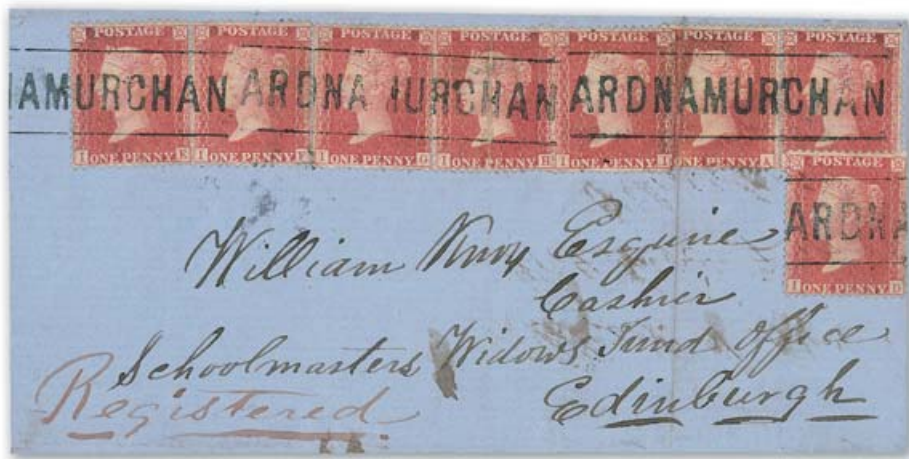 POSTAGE POSTAGE POSTAGE POSTAGE POSTAGE POSTAGE POSTAGE
NAMURCHAN ARDNA IURCHAN ARDNAMURCHAN
I ONE PENNY E I ONE PENNY F I ONE PENNY G I ONE PENNY H I ONE PENNY I I ONE PENNY A I ONE PENNY
POSTAGE
ARDNA
I ONE PENNY D
William Knox Esquire
Cashier
Schoolmasters Widows Fund Office
Edinburgh
Registered